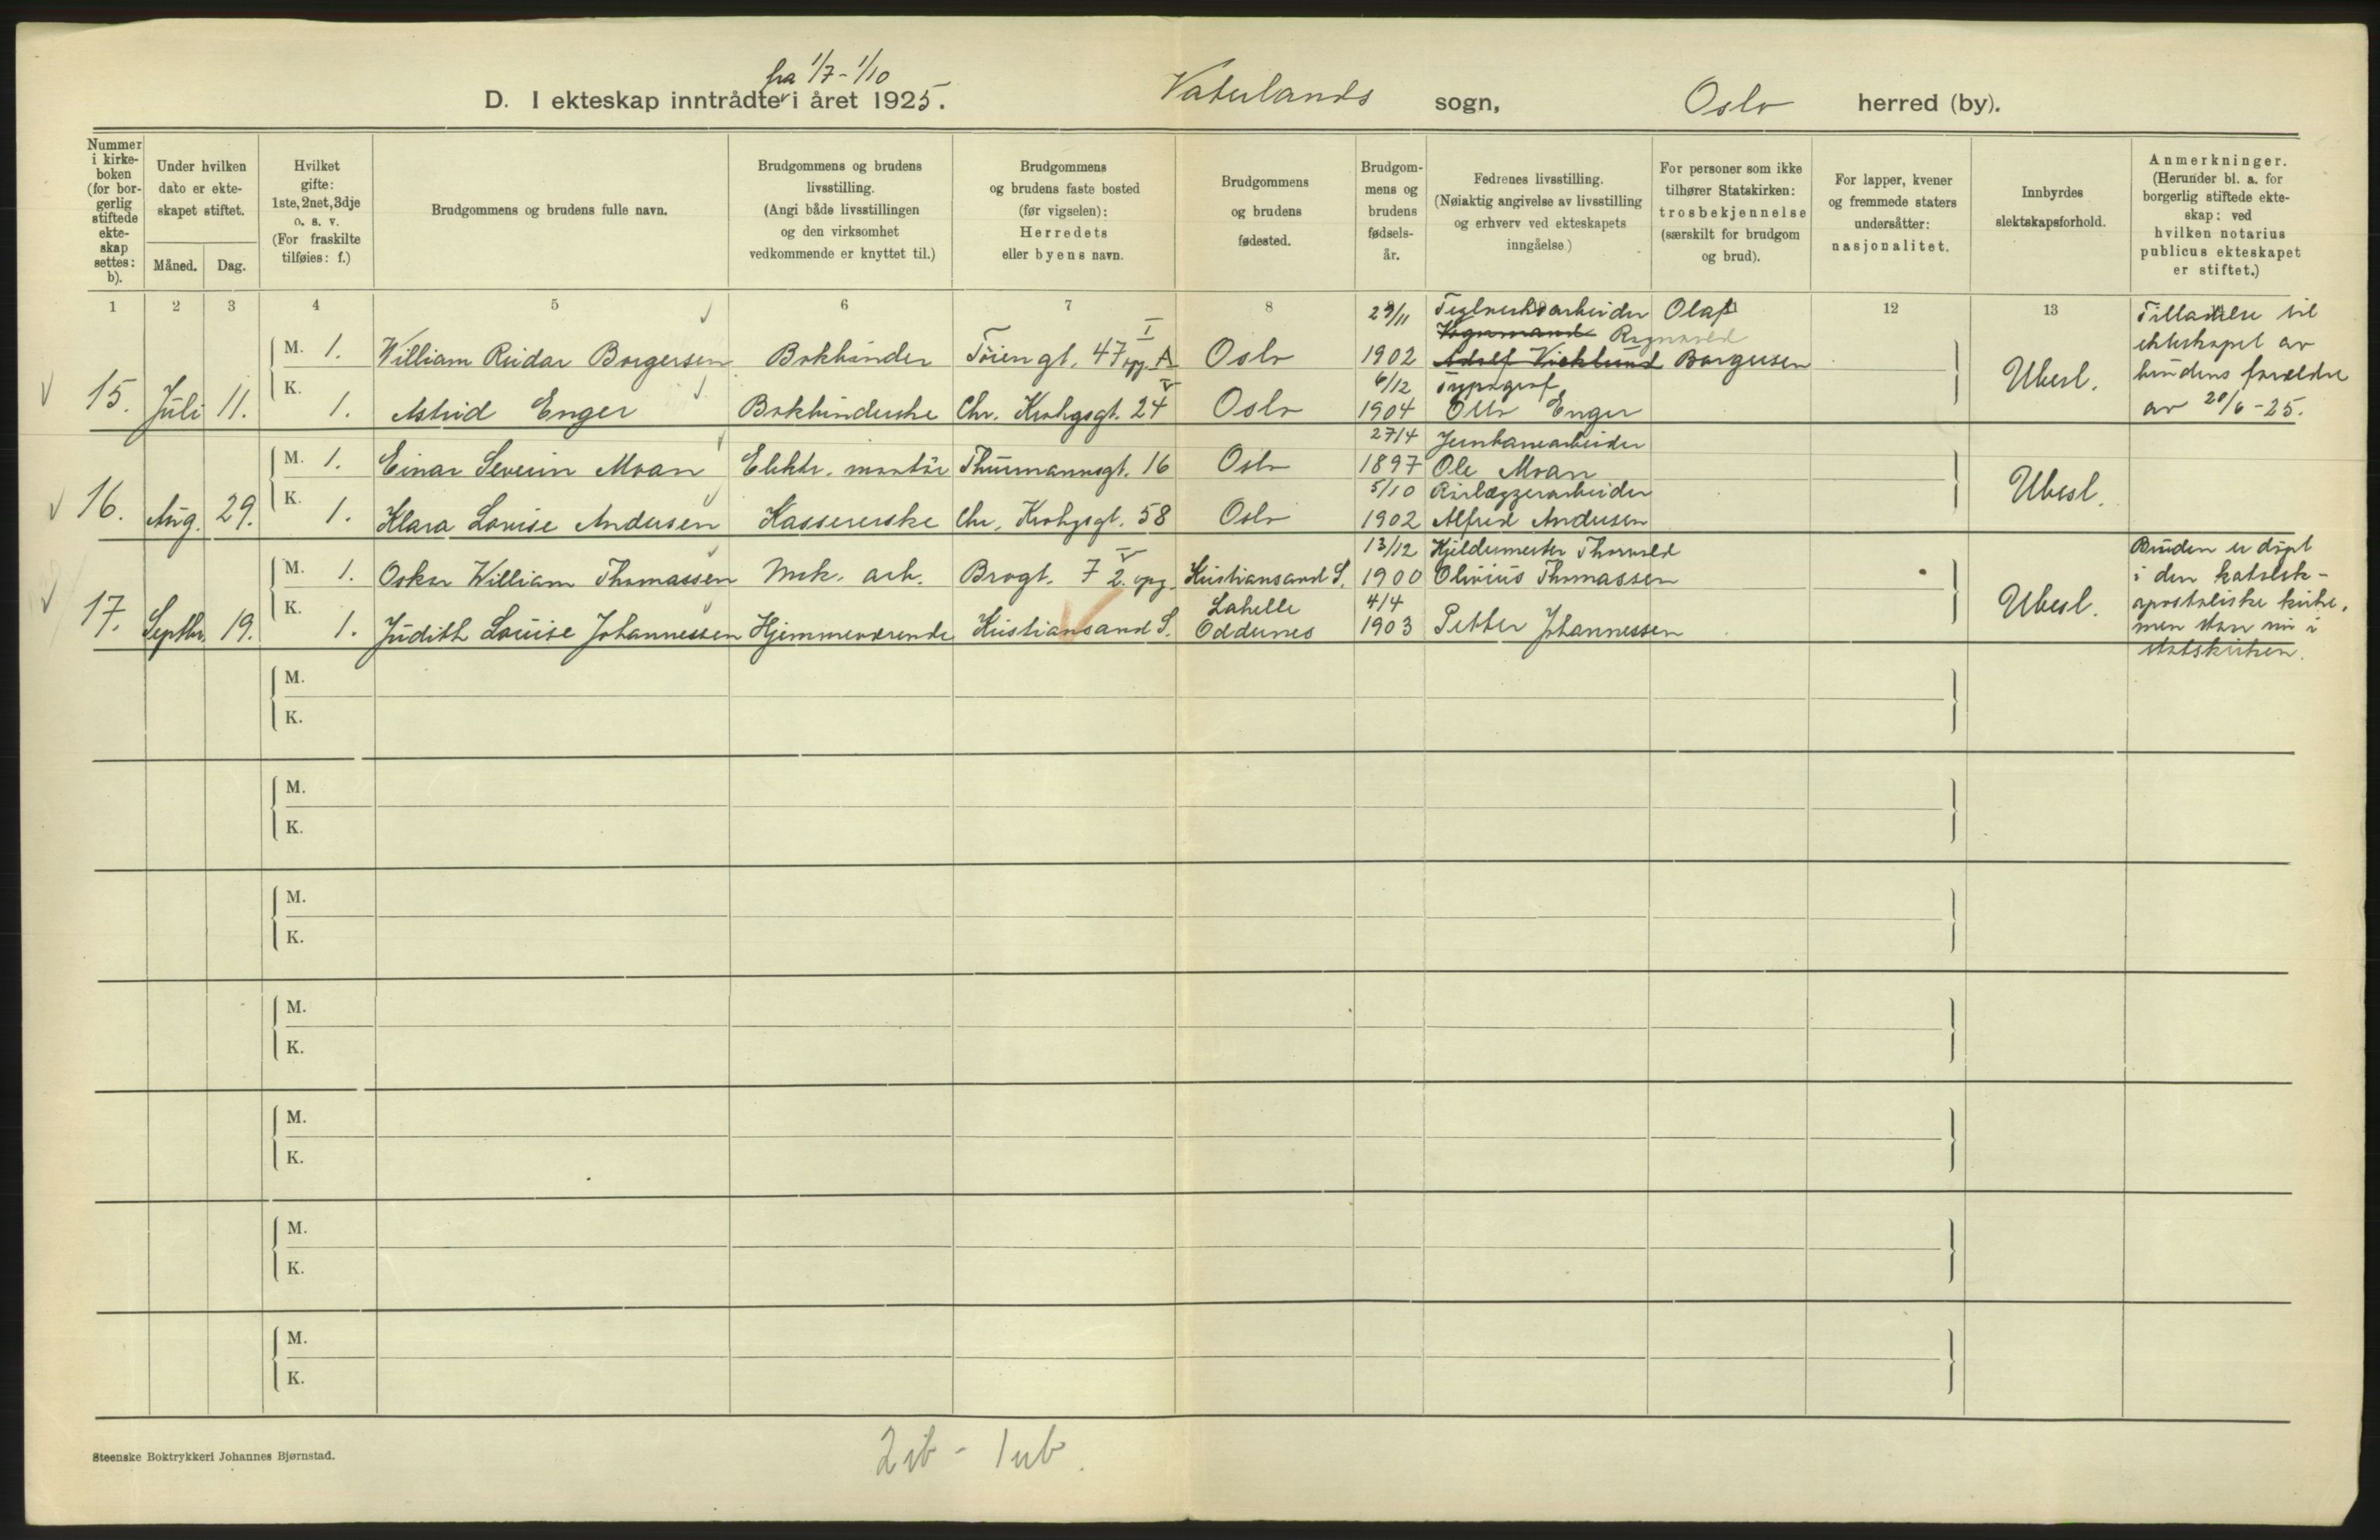 fra 1/7 - 1/10
D. I ekteskap inntrådte i året 1925. Vaterlands sogn, Oslo herred (by).
Nummer i kirkeboken (for borgerlig stiftede ekteskap settes: b).
Under hvilken dato er ekteskapet stiftet.
Måned. Dag.
Hvilket gifte: 1ste, 2net, 3dje o. s. v. (For fraskilte tilføies: f.)
Brudgommens og brudens fulle navn.
Brudgommens og brudens livsstilling. (Angi både livsstillingen og den virksomhet vedkommende er knyttet til.)
Brudgommens og brudens faste bosted (før vigselen): Herredets eller byens navn.
Brudgommens og brudens fødested.
Brudgommens og brudens fødselsår.
Fedrenes livsstilling. (Nøiaktig angivelse av livsstilling og erhverv ved ekteskapets inngåelse.)
For personer som ikke tilhører Statskirken: trosbekjennelse (særskilt for brudgom og brud).
For lapper, kvener og fremmede staters undersåtter: nasjonalitet.
Innbyrdes slektskapsforhold.
Anmerkninger. (Herunder bl. a. for borgerlig stiftede ekteskap: ved hvilken notarius publicus ekteskapet er stiftet.)
1 2 3 4 5 6 7 8 12 13
15. Juli 11.
M. 1. William Reidar Borgersen Bokbinder Töiengt. 47 I opg. A Oslo 29/11 1902 Teglverksarbeider Olaf Ragnvald Borgersen
Vognmand Adolf Vicklund
K. 1. Astrid Enger Bokbinderske Chr. Krohgsgt. 24 V Oslo 6/12 1904 Typograf Otto Enger
Ubesl.
Tilladelse til
ekteskapet av
brudens forældre
av 20/6-25.
16. Aug. 29.
M. 1. Einar Severin Moan Elektr. montör Thurmannsgt. 16 Oslo 27/4 1897 Jernbanearbeider Ole Moan
K. 1. Klara Lovise Andersen Kassererske Chr. Krohgsgt. 58 Oslo 5/10 1902 Rörlæggerarbeider Alfred Andersen
Ubesl.
17. Septbr. 19.
M. 1. Oskar William Thomassen Mek. arb. Brogt. 7 V 2. opg. Kristiansand S. 13/12 1900 Kjeldermester Thorvald Olivius Thomassen
K. 1. Judith Louise Johannessen Hjemmeværende Kristiansand S. Lahelle Oddernes 4/4 1903 Petter Johannessen
Ubesl.
Bruden er döpt
i den katolsk-
apostoliske kirke,
men staar nu i
statskirken.
M.
K.
M.
K.
M.
K.
M.
K.
M.
K.
M.
K.
M.
K.
Steenske Boktrykkeri Johannes Bjørnstad.
2 ib - 1 ub.